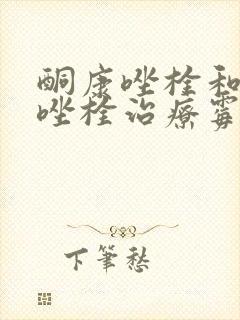 酮康唑栓和
唑栓治疗霉
下笔愁